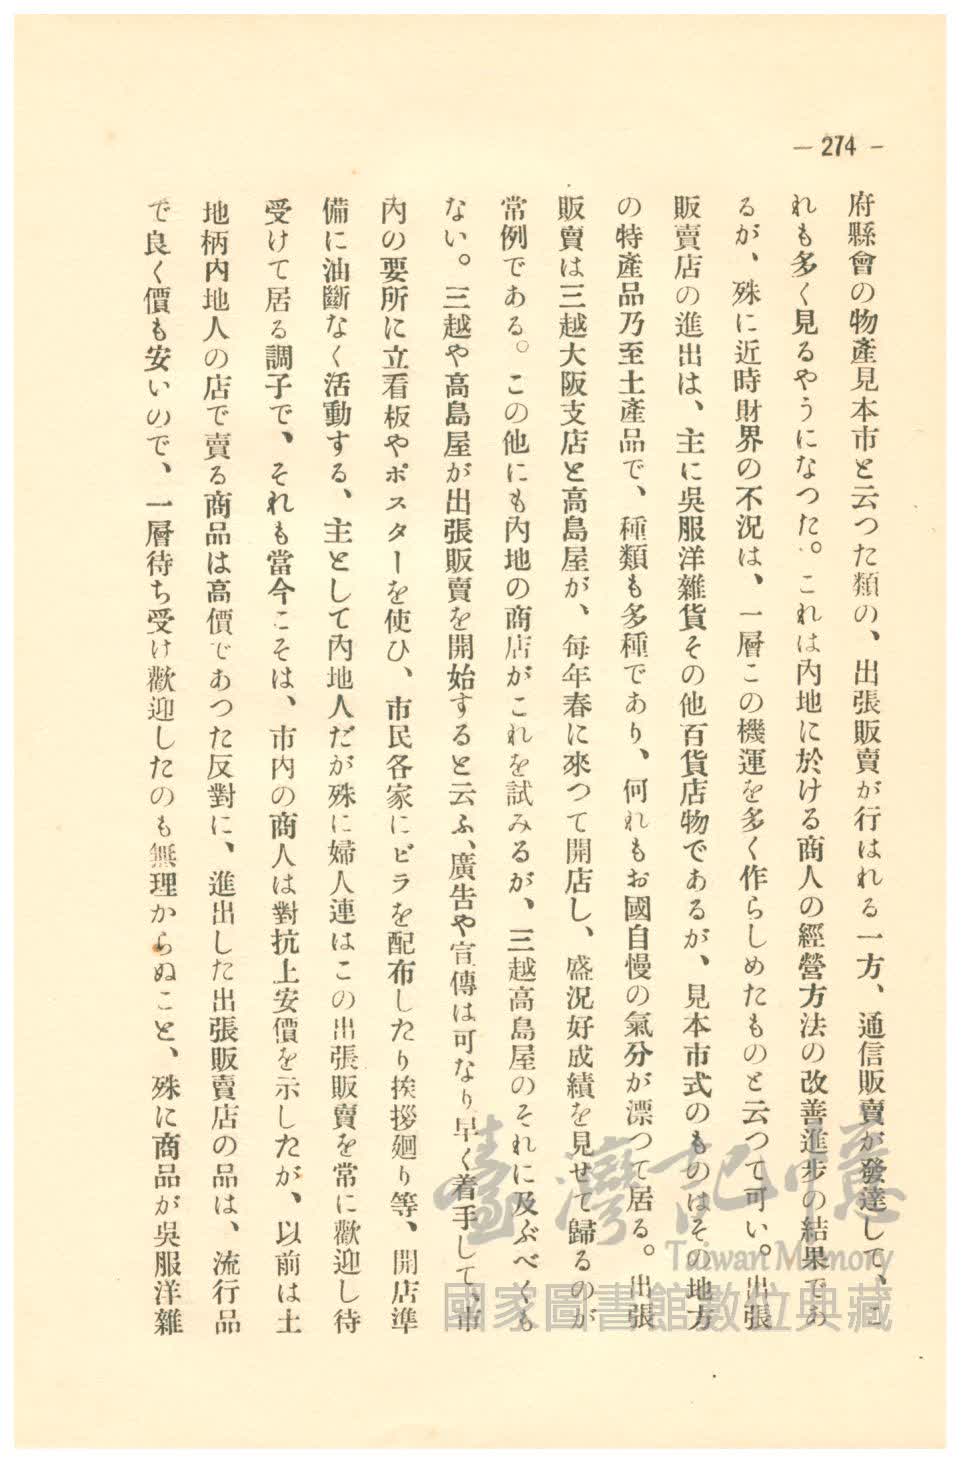 — 274 —
府縣會の物產見本市と云つた類の、出張販賣が行はれる一方、通信販賣が發達して、こ
れも多く見るやうになつた。これは內地に於ける商人の經營方法の改善進步の結果であ
るが、殊に近時財界の不況は、一層この機運を多く作らしめたものと云つて可い。出張
販賣店の進出は、主に吳服洋雜貨その他百貨店物であるが、見本市式のものはその地方
の特產品乃至土產品で、種類も多種であり、何れもお國自慢の氣分が漂つて居る。出張
販賣は三越大阪支店と高島屋が、每年春に來つて開店し、盛況好成績を見せて歸るのが
常例である。この他にも內地の商店がこれを試みるが、三越高島屋のそれに及ぶべくも
ない。三越や高島屋が出張販賣を開始すると云ふ、廣告や宣傳は可なり早く着手して、市
內の要所に立看板やポスターを使ひ、市民各家にビラを配布したり挨拶廻り等、開店準
備に油斷なく活動する、主として內地人だが殊に婦人連はこの出張販賣を常に歡迎し待
受けて居る調子で、それも當今こそは、市內の商人は對抗上安價を示したが、以前は土
地柄內地人の店で賣る商品は高價であつた反對に、進出した出張販賣店の品は、流行品
で良く價も安いので、一層待ち受け歡迎したのも無理からぬこと、殊に商品が吳服洋雜
臺灣記憶
Taiwan Memory
國家圖書館數位典藏